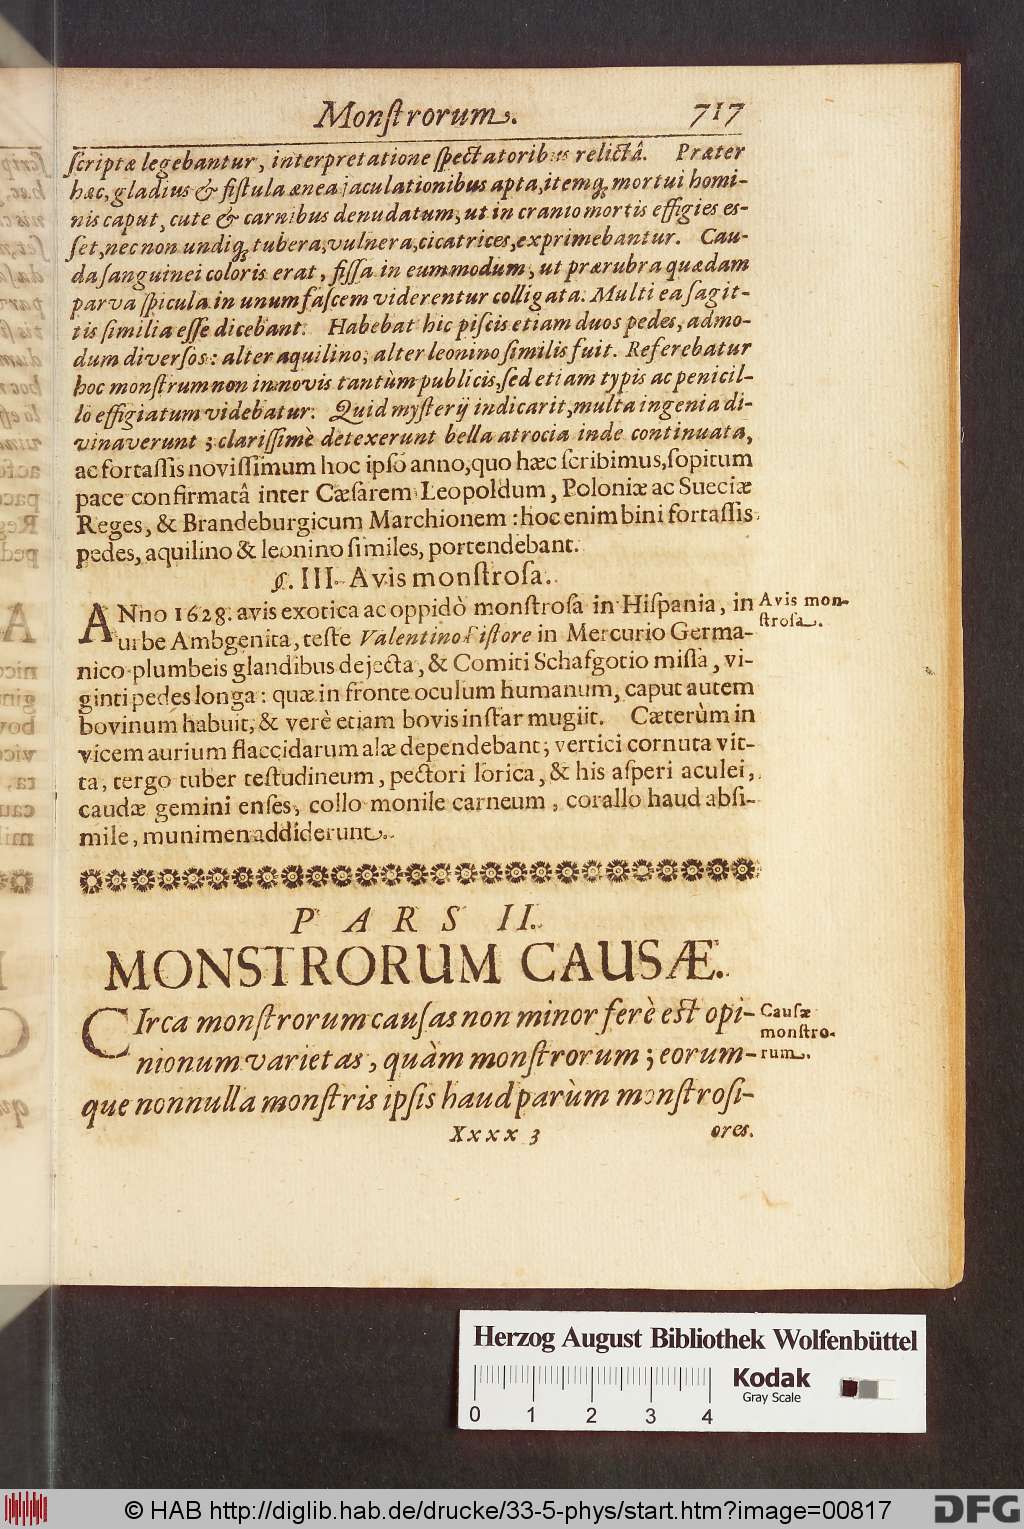 Monſtrorum. 717
ſcriptæ legebantur, interpretatione ſpectatoribus relictâ. Præter
hæc, gladius & fiſtula ænea jaculationibus apta, itemq́; mortui homi-
nis caput, cute & carnibus denudatum, ut in cranio mortis effigies es-
ſet, nec non undiq́; tubera, vulnera, cicatrices, exprimebantur. Cau-
da ſanguinei coloris erat, fiſſa in eum modum, ut prærubra quædam
parva ſpicula in unum faſcem viderentur colligata. Multi ea ſagit-
tis ſimilia eſſe dicebant. Habebat hic piſcis etiam duos pedes, admo-
dum diverſos: alter aquilino, alter leonino ſimilis fuit. Referebatur
hoc monſtrum non in novis tantùm publicis, ſed etiam typis ac penicil-
lo effigiatum videbatur. Quid myſterij indicarit, multa ingenia di-
vinaverunt; clariſſimè detexerunt bella atrocia inde continuata,
ac fortaſſis noviſſimum hoc ipſo anno, quo hæc ſcribimus, ſopitum
pace confirmatâ inter Cæſarem Leopoldum, Poloniæ ac Sueciæ
Reges, & Brandeburgicum Marchionem: hoc enim bini fortaſſis
pedes, aquilino & leonino ſimiles, portendebant.
§. III. Avis monſtroſa.
ANno 1628. avis exotica ac oppidò monſtroſa in Hiſpania, in
urbe Ambgenita, teſte Valentino Piſtore in Mercurio Germa-
nico plumbeis glandibus dejecta, & Comiti Schafgotio miſſa, vi-
ginti pedes longa: quæ in fronte oculum humanum, caput autem
bovinum habuit, & verè etiam bovis inſtar mugiit. Cæterùm in
vicem aurium flaccidarum alæ dependebant; vertici cornuta vit-
ta, tergo tuber teſtudineum, pectori lorica, & his aſperi aculei,
caudæ gemini enſes, collo monile carneum, corallo haud abſi-
mile, munimen addiderunt.
Avis mon-
ſtroſa.
PARS II.
MONSTRORUM CAUSÆ.
CIrca monſtrorum cauſas non minor ferè eſt opi-
nionum varietas, quàm monſtrorum; eorum-
que nonnulla monſtris ipſis haud parùm monſtroſi-
Cauſæ
monſtro-
rum.
Xxxx 3 ores.
Herzog August Bibliothek Wolfenbüttel
0 1 2 3 4
Kodak
Gray Scale
© HAB http://diglib.hab.de/drucke/33-5-phys/start.htm?image=00817
DFG